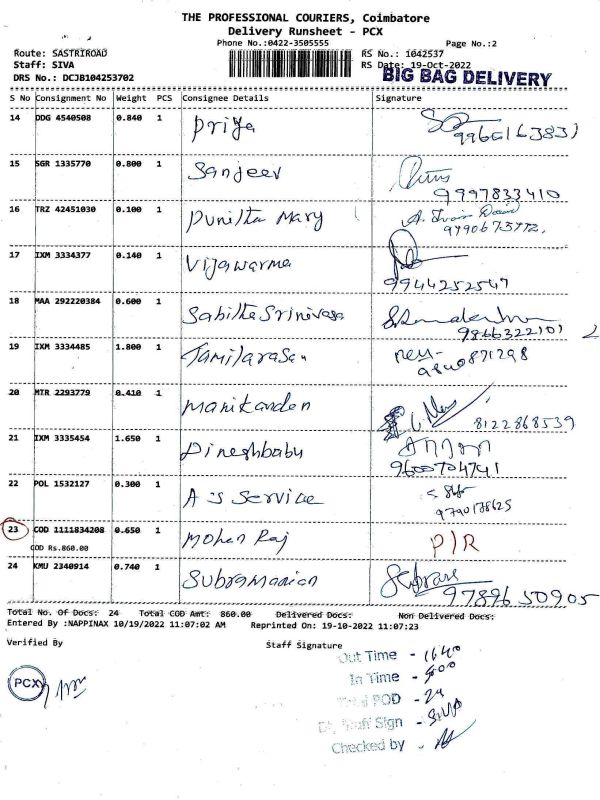 THE PROFESSIONAL COURIERS, Coimbatore
Delivery Runsheet - PCX
Phone No.:0422-3505555 Page No.:2
Route: SASTRIROAD RS No.: 1042537
Staff: SIVA RS Date: 19-Oct-2022
DRS No.: DCJB104253702 BIG BAG DELIVERY
S No Consignment No Weight PCS Consignee Details Signature
14 DDG 4540508 0.840 1 Priya
9966163831
15 SGR 1335770 0.800 1 Sanjeev
9997833410
16 TRZ 42451030 0.100 1 Punitha Mary
17 IXM 3334377 0.140 1 Vijawarma
9944252547
18 MAA 292220384 0.600 1 Sabitha Srinivasa
9866322101
19 IXM 3334485 1.800 1 Tamilarasan
9840871298
20 MTR 2293779 0.410 1 Manikanden
8122868539
21 IXM 3335454 1.650 1 Dineshbabu
9600704741
22 POL 1532127 0.300 1 A S Service
9790178625
23 COD 1111834208 0.650 1 Mohan Raj P/R
COD Rs.860.00
24 KMU 2340914 0.740 1 Subramanian
9789650905
Total No. Of Docs: 24 Total COD Amt: 860.00 Delivered Docs: Non Delivered Docs:
Entered By :NAPPINAX 10/19/2022 11:07:02 AM Reprinted On: 19-10-2022 11:07:23
Verified By Staff Signature
Out Time - 1640
In Time - 800
Total POD - 24
Staff Sign - SIVA
Checked by -
PCX